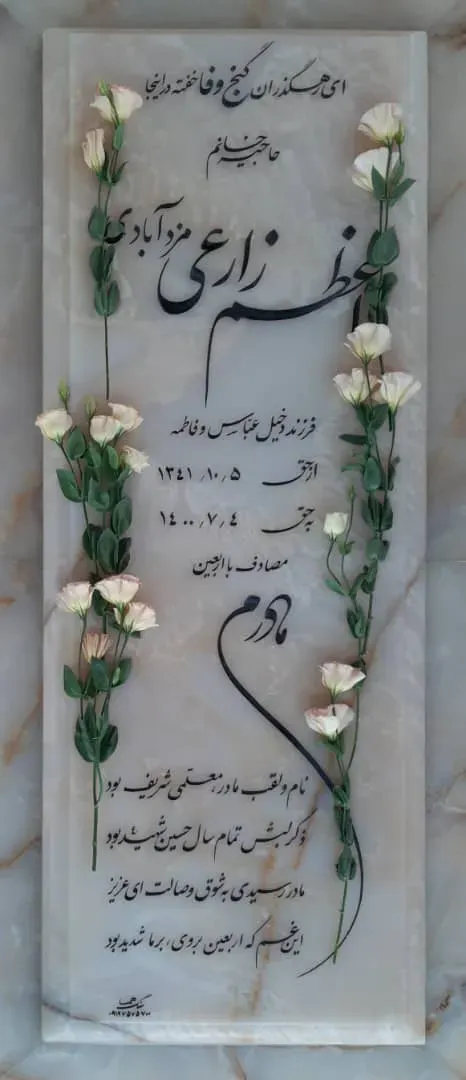 ای رهگذران گنج وفا خفته در اینجا
حاجیه خانم
اعظم زارعی مزدآبادی
فرزند دخیل عباس و فاطمه
از حق ۱۳۴۱/۱۰/۵
به حق ۱۴۰۰/۷/۴
مصادف با اربعین
مادرم
نام و لقب مادر، معلمی شریف بود
ذکر لبش تمام سال حسین شهید بود
مادر رسیدی به شوق وصالت ای عزیز
این غم که اربعین بروی، بر ما شدید بود